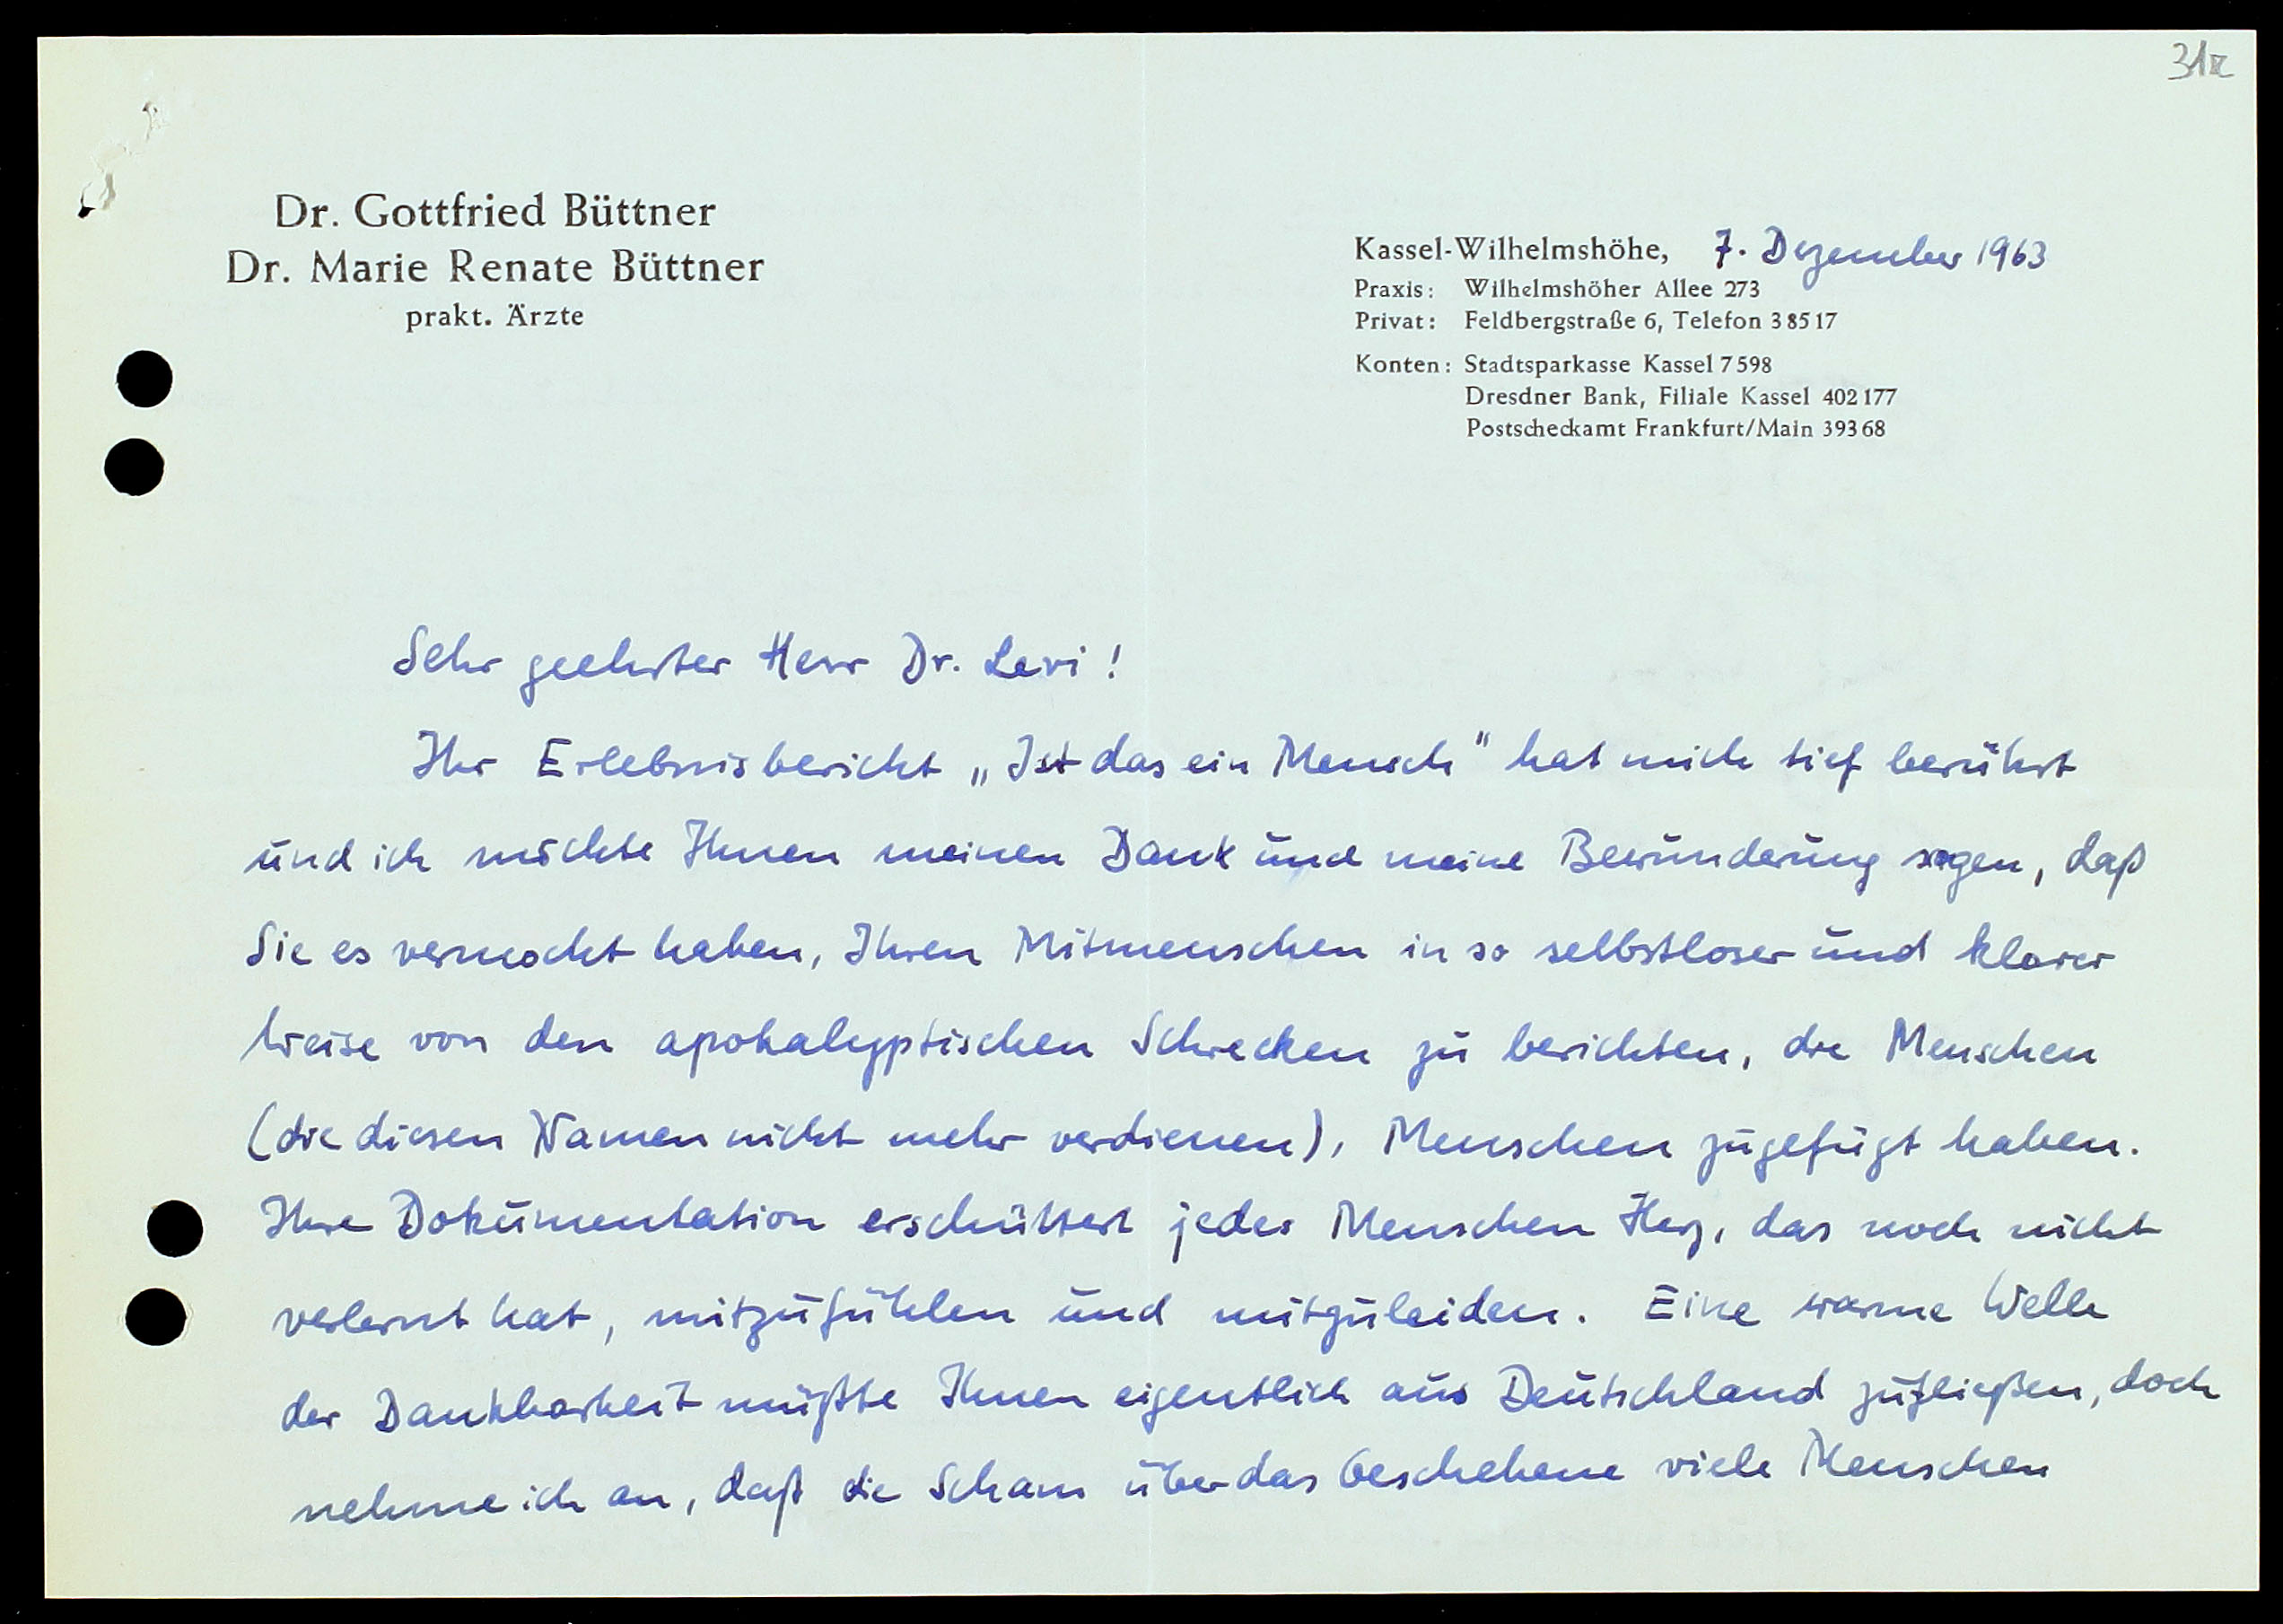 31r
Dr. Gottfried Büttner
Dr. Marie Renate Büttner
prakt. Ärzte
Kassel-Wilhelmshöhe, 7. Dezember 1963
Praxis: Wilhelmshöher Allee 273
Privat: Feldbergstraße 6, Telefon 3 85 17
Konten: Stadtsparkasse Kassel 7 598
Dresdner Bank, Filiale Kassel 402 177
Postscheckamt Frankfurt/Main 393 68
Sehr geehrter Herr Dr. Levi!
Ihr Erlebnisbericht „Ist das ein Mensch" hat mich tief berührt
und ich möchte Ihnen meinen Dank und meine Bewunderung sagen, daß
Sie es vermocht haben, Ihren Mitmenschen in so selbstloser und klarer
Weise von den apokalyptischen Schrecken zu berichten, die Menschen
(die diesen Namen nicht mehr verdienen), Menschen zugefügt haben.
Ihre Dokumentation erschüttert jedes Menschen Herz, das noch nicht
verlernt hat, mitzufühlen und mitzuleiden. Eine warme Welle
der Dankbarkeit müßte Ihnen eigentlich aus Deutschland zufließen, doch
nehme ich an, daß die Scham über das Geschehene viele Menschen